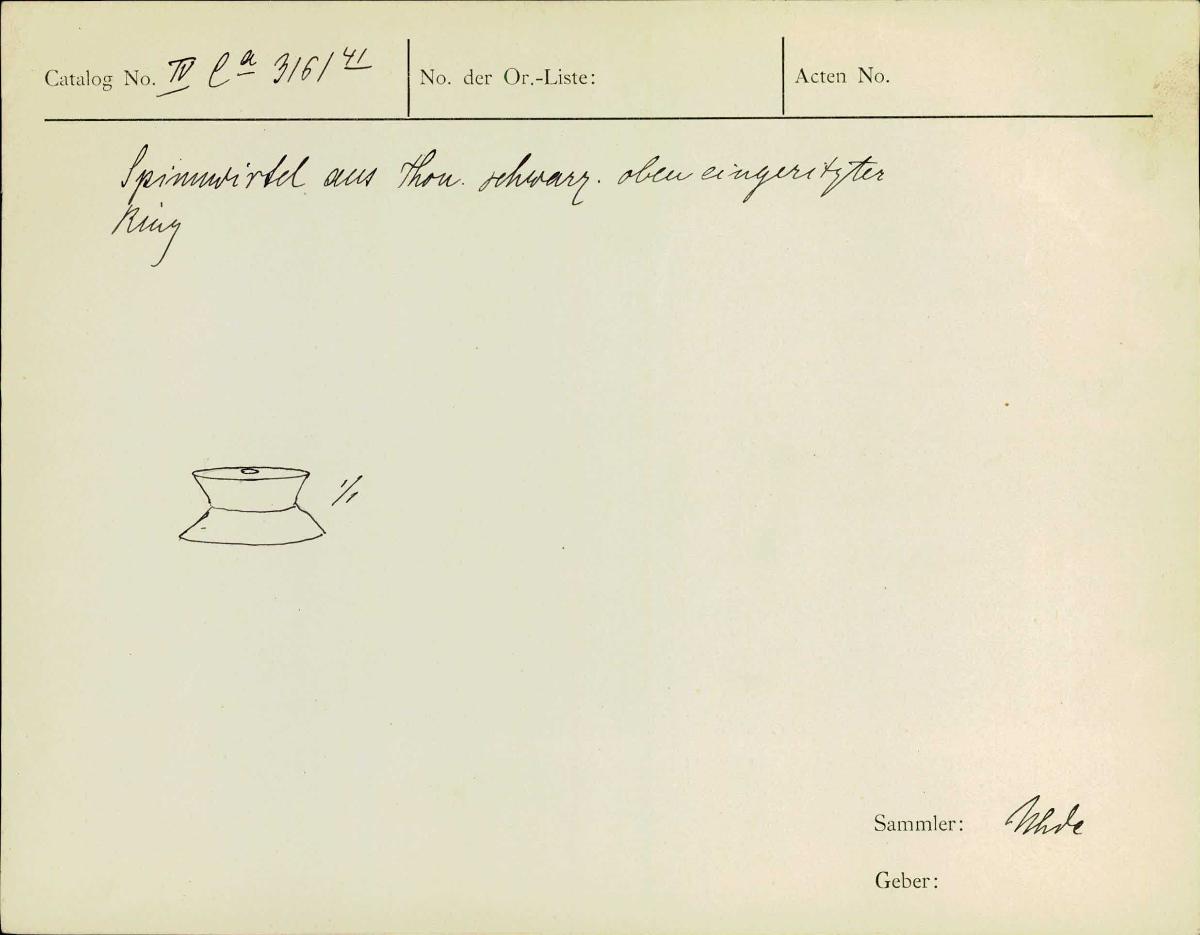 Catalog No. IV Ca 3161 41
No. der Or.-Liste:
Acten No.
Spinnwirtel aus Thon. schwarz. oben eingeritzter
Ring
1/1
Sammler: Uhde
Geber: